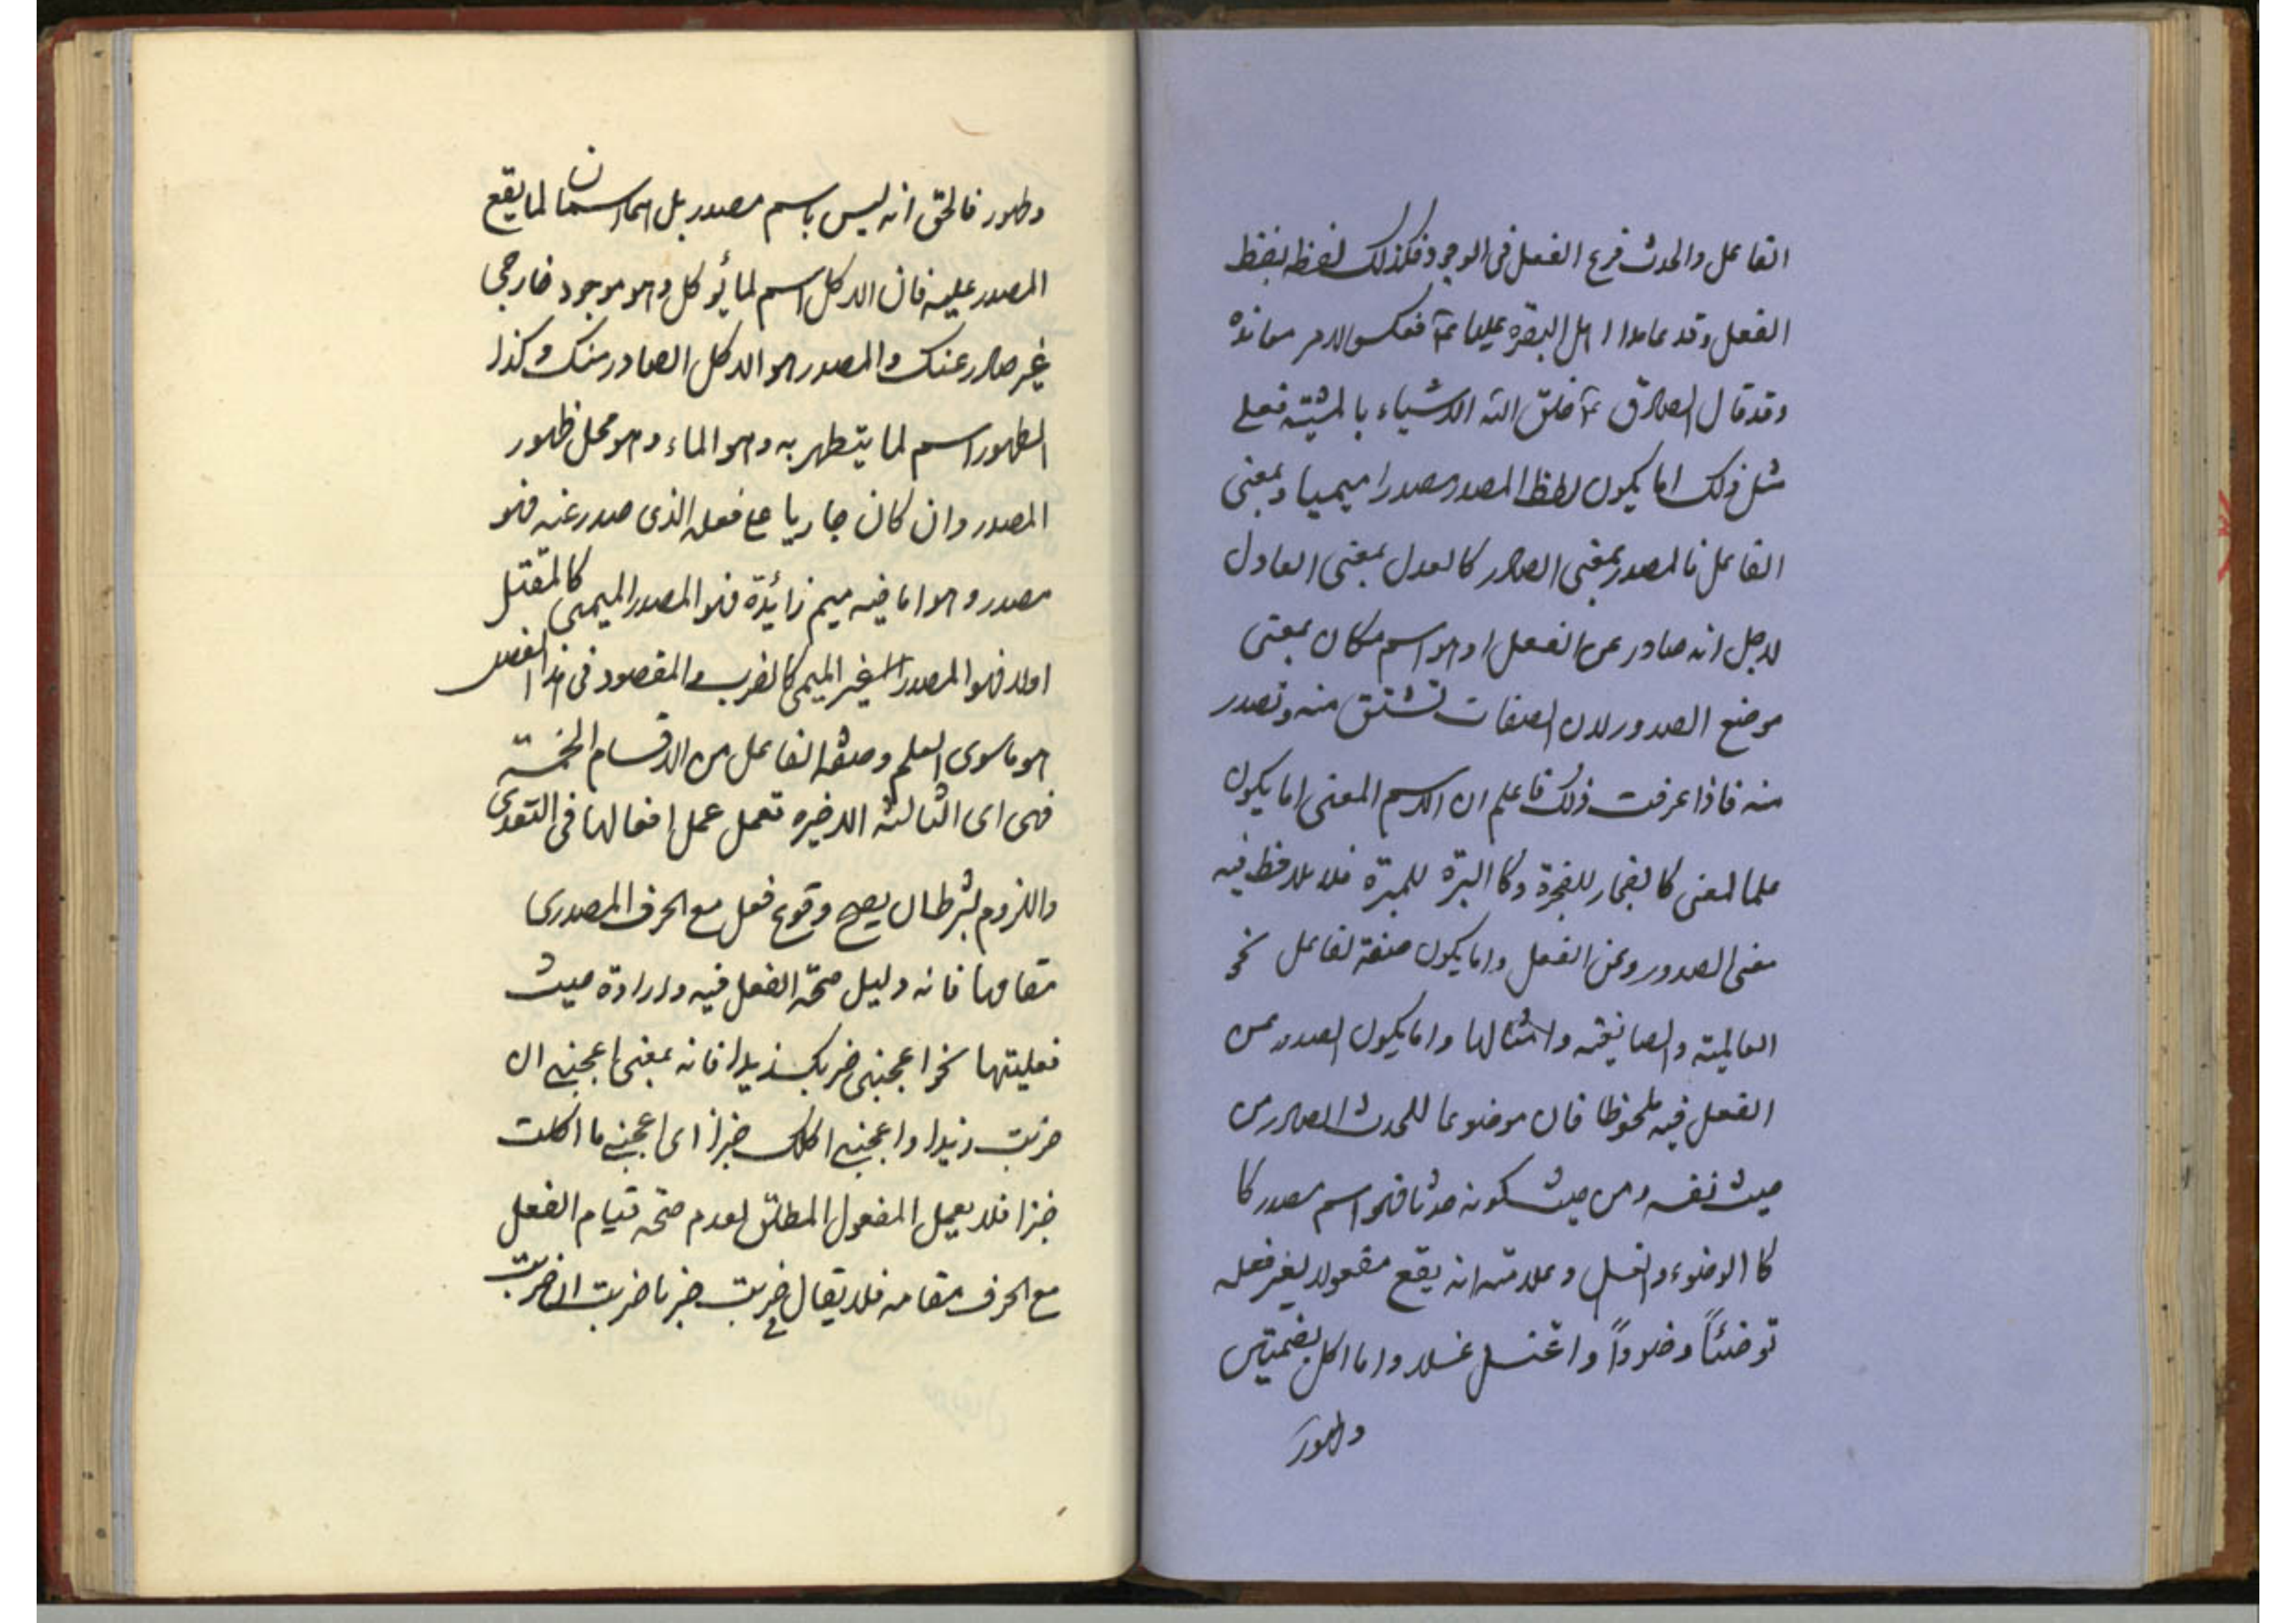 الفاعل والحدث فرع الفعل فى الوجود فكذلك لفظه بلفظ
الفعل وقد عاندا اهل البصره عليا ع٣ فعكس الامر معاندة
وقد قال الصادق ع٣ خلق الله الاشياء بالمشية فعلى
مثل ذلك اما يكون لفظ المصدر مصدرا ميميا وبمعنى
الفاعل فالمصدر بمعنى الصادر كالعدل بمعنى العادل
لاجل انه صادر عن الفعل او هو اسم مكان بمعنى
موضع الصدور لان الصفات تشتق منه وتصدر
منه فاذا عرفت ذلك فاعلم ان الاسم المعنى اما يكون
علما لمعنى كالفجار للفجرة وكا البرة للمبرة فلا يلاحظ فيه
معنى الصدور وعن الفعل واما يكون صفة لفاعل نحو
العالمية والصايغية وامثالها واما يكون الصدور من
الفعل فيه ملحوظا فان موضوعا للحدث الصادر من
حيث نفسه ومن حيث كونه حدثا فهو اسم مصدر كا
كا الوضوء والغسل وعلامته انه يقع مفعولا لغير فعله
توضئاً وضوءاً واغتسل غسلا واما اكل بضمتين
وطهور
وطهور فالحق انه ليس باسم مصدر بل اسمان لما يقع
المصدر عليه فان الاكل اسم لما يؤكل وهو موجود خارجى
غير صادر عنك والمصدر هو الاكل الصادر منك وكذا
الطهور اسم لما يتطهر به وهو الماء وهو محل ظهور
المصدر وان كان جاريا على فعله الذى صدر عنه فهو
مصدر وهو اما فيه ميم زائدة فهو المصدر الميمى كالمقتل
اولا فهو المصدر الغير الميمى كالضرب والمقصود فى هذا الفصل
هو ماسوى العلم وصفة الفاعل من الاقسام الخمسة
فهى اى الثالثة الاخيره تعمل عمل افعالها فى التعدى
واللزوم بشرط ان يصح وقوع فعل مع الحرف المصدرى
مقامها فانه دليل صحة الفعل فيه وارادة حيث
فعليتها نحو اعجبنى ضربك زيدا فانه بمعنى اعجبنى ان
ضربت زيدا واعجبنى اكلك خبزا اى اعجبنى ما اكلت
خبزا فلا يعمل المفعول المطلق لعدم صحة قيام الفعل
مع الحرف مقامه فلا يقال فى ضربت ضربا ضربت ان ضربت